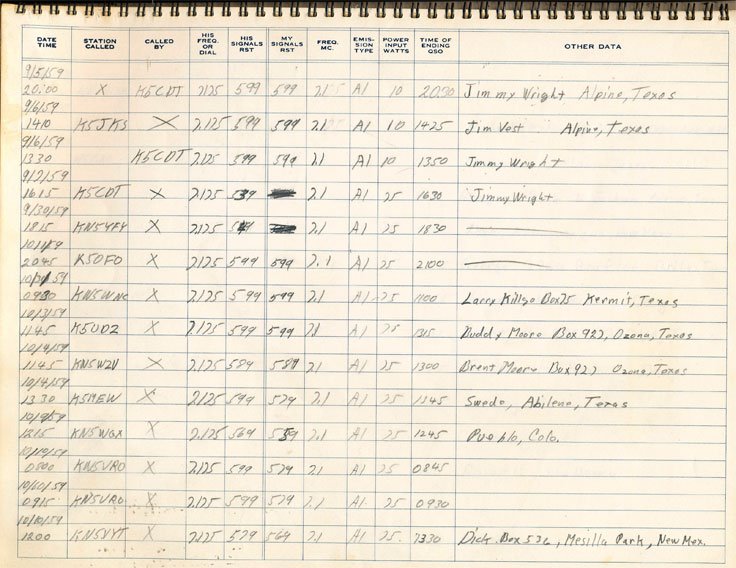 DATE TIME STATION CALLED CALLED BY HIS FREQ. OR DIAL HIS SIGNALS RST MY SIGNALS RST FREQ. MC. EMIS- SION TYPE POWER INPUT WATTS TIME OF ENDING QSO OTHER DATA
9/5/59
20:00 X K5CDT 7.125 599 599 A1 10 2030 Jimmy Wright Alpine, Texas
9/6/59
1410 K5JKS X 7.125 599 599 A1 10 1425 Jim Vest Alpine, Texas
9/6/59
1330 K5CDT 7.125 599 599 7.1 A1 10 1350 Jimmy Wright
1615 K5CDT X 7.125 7.1 A1 25 1630 Jimmy Wright
9/30/59
1815 KN5YFY X 7.125 7.1 A1 25 1830
2045 K5OFO X 7.125 599 599 7.1 A1 25 2100
KN5WNC X 7.125 599 599 7.1 A1 25 1100 Larry Killgo Box 75 Kermit, Texas
10/3/59
1145 K5UDZ X 7.125 599 599 7.1 A1 25 1315 Buddy Moore Box 927, Ozona, Texas
10/4/59
1145 KN5WZV X 7.125 589 589 7.1 A1 25 1300 Brent Moore Box 927 Ozona, Texas
10/4/59
1330 K5MEW X 7.125 599 579 7.1 A1 25 1345 Swede, Abilene, Texas
1215 KN5WGX X 7.125 569 7.1 A1 25 1245 Pueblo, Colo.
10/10/59
0800 KN5VRO X 7.125 599 579 7.1 A1 25 0845
0915 KN5VRO X 7.125 599 579 7.1 A1 25 0930
10/10/59
1200 KN5VYT X 7.125 579 569 7.1 A1 25 Dick Box 536, Mesilla Park, New Mex.